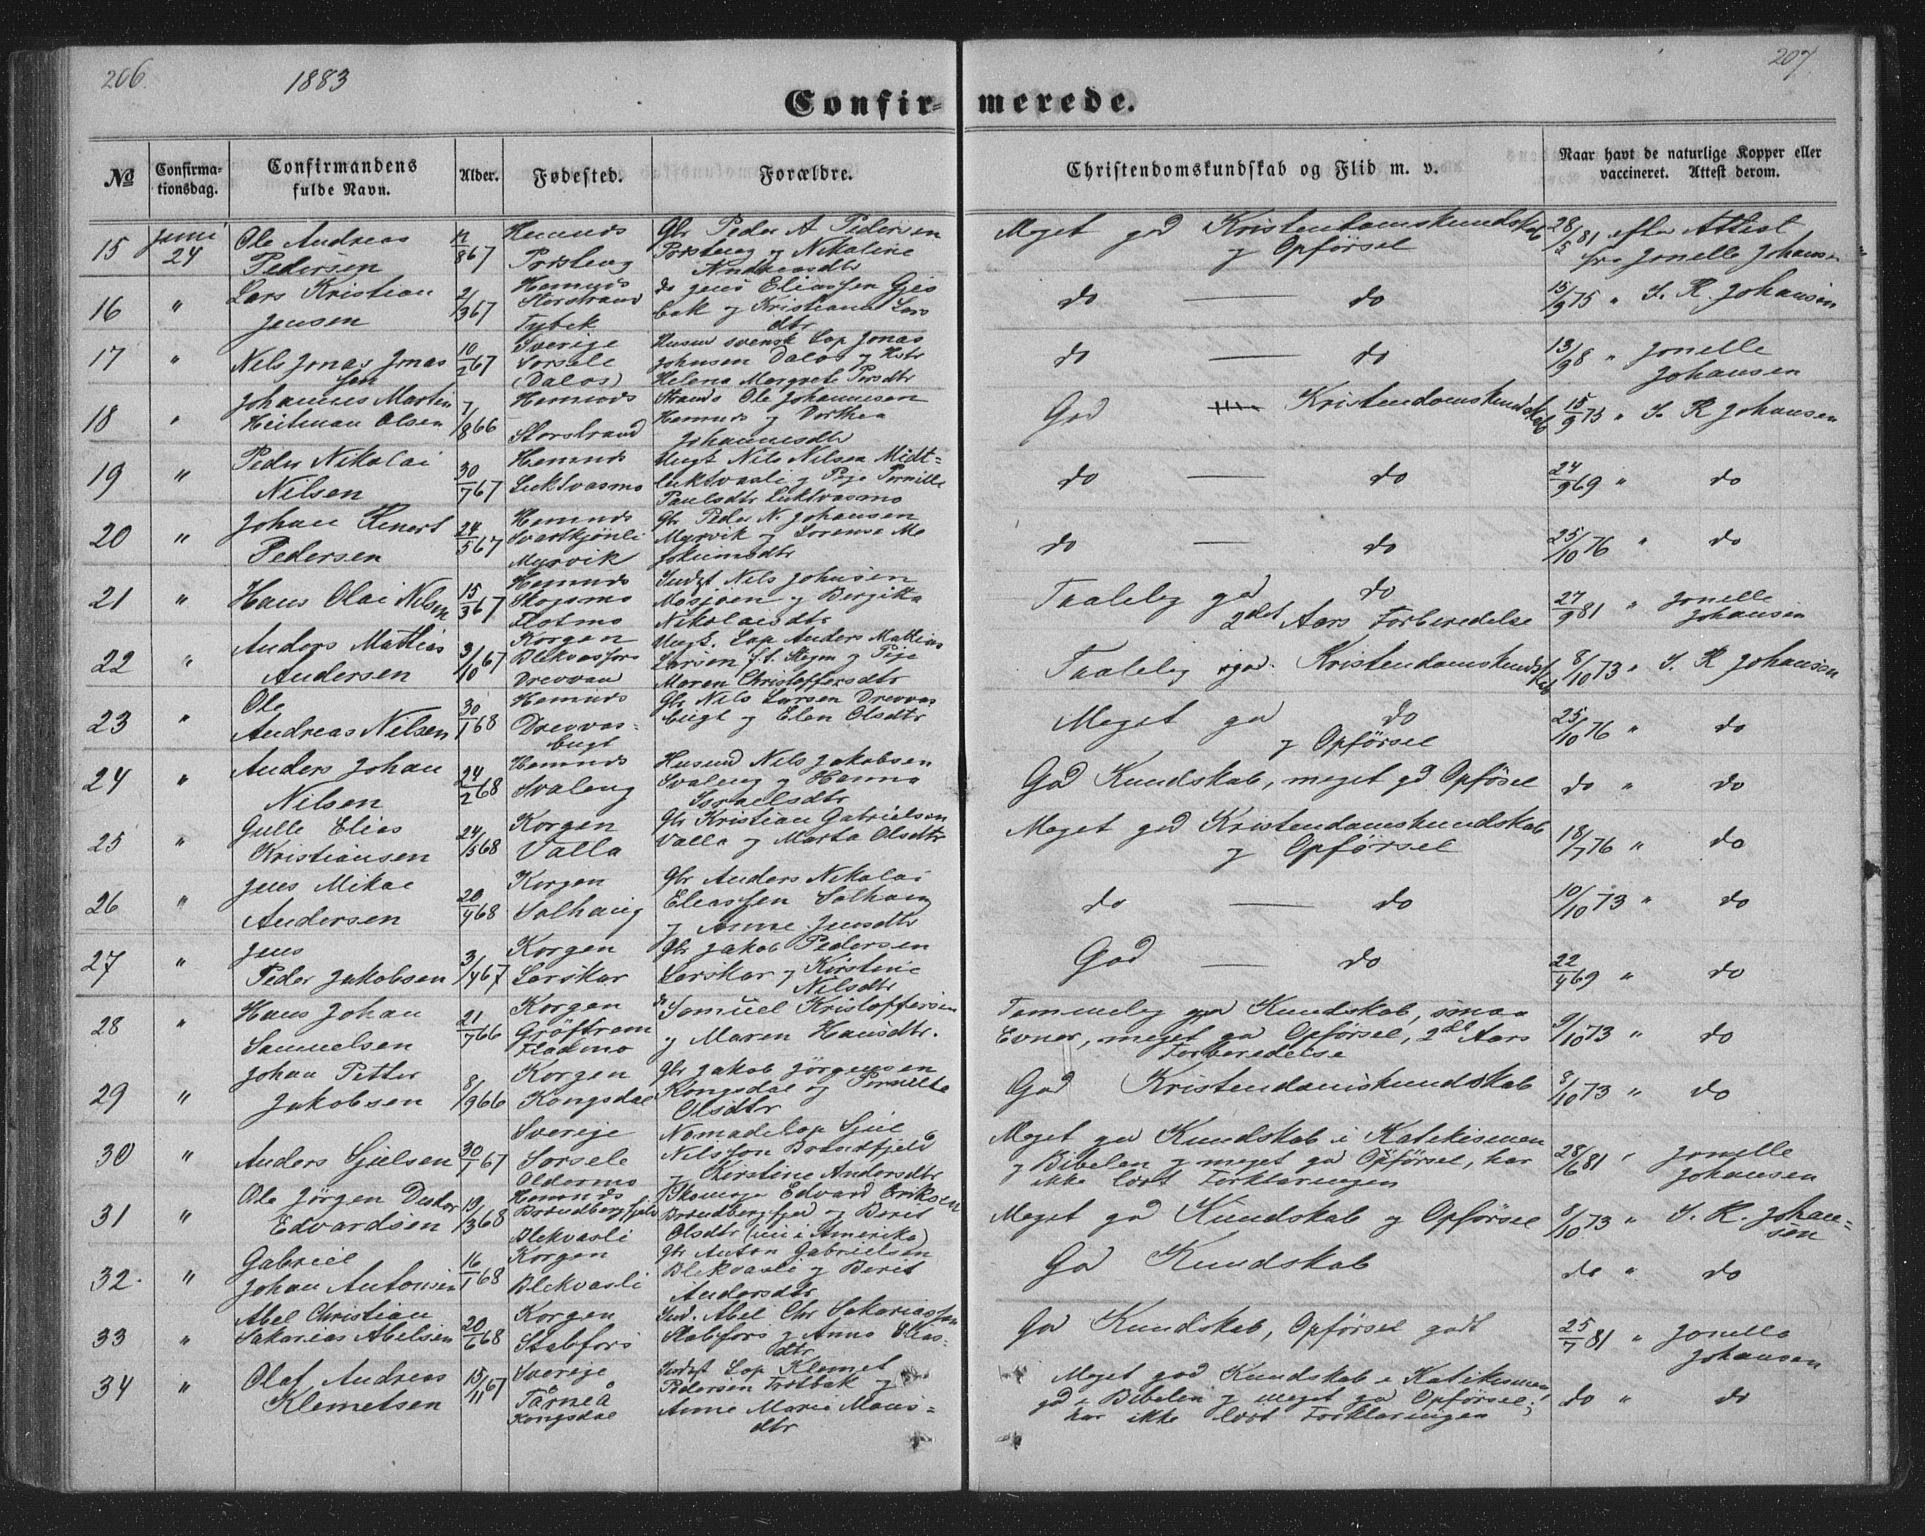 206.
1883
207.
Confir- merede.
No
Confirma-
tionsdag.
Confirmandens
fulde Navn.
Alder.
Fødested.
Forældre.
Christendomskundskab og Flid m. v.
Naar havt de naturlige Kopper eller
vaccineret. Attest derom.
15 Juni 24 Ole Andreas Pedersen 12/8 67 Hemnæs Gbr Peder A Pedersen og Nikoline Andreasdtr Meget god Kristendomskundskab og Opførsel 28/5 81 efter Attest fra Jonelle Johansen
16 " Lars Kristian Jensen 2/9 67 Hemnæs Storstrand do Jens Eliassen og Kristiana Lars dtr do — do 15/9 75 " S. R. Johansen
17 " Nils Jonas Jonas sen 10/2 67 Sverige Sorsele (Dalos) svensk Lap Jonas Johnsen Dalos og Hstr Helena Margrete Persdtr do — do 13/9 8 " Jonelle Johansen
18 " Johannes Martin Heitman Olsen 7/8 66 Hemnæs Storstrand Strands Ole Johannesen Hemnæs og Dorthea Johannesdtr God Kristendomskundskab 15/9 75 " S. R. Johansen
19 " Peder Nikolai Nilsen 30/7 67 Hemnæs Luktvasmo Ungk Nils Nilsen Midt= luktvasli og Pige Pernille Paulsdtr Luktvasmo do — do 24/9 69 " do
20 " Johan Renert Pedersen 24/5 67 Hemnæs Myrvik Gbr Peder N. Johansen Myrvik og Lorensa Jokumsdtr do — do 25/10 76 " do
21 " Hans Olai Nilsen 15/3 67 Hemnæs Skogsmo Indst Nils Johnsen Mosjøen og Bergitta Nikolaisdtr Taalelig gd do 2det Aars Forberedelse 27/9 81 " Jonelle Johansen
22 " Anders Mathias Andersen 3/10 67 Korgen Blekvasfors Drevvan Ungk. Lap Anders Mathias Larsen og Pige Maren Christoffersdtr Taalelig god Kristendomskundskab 8/10 73 " S. R. Johansen
23 " Ole Andreas Nilsen 30/1 68 Hemnæs Drevvas- bugt Gbr Nils Larsen Drevvas bugt og Elen Olsdtr Meget gd do og Opførsel 25/10 76 " do
24 " Anders Johan Nilsen 24/2 68 Hemnæs Svaleng Husmd Nils Jakobsen Svaleng og Hanna Israelsdtr God Kundskab, meget gd Opførsel do " do
25 " Gulle Elias Kristiansen 24/5 68 Korgen Valla Gbr Kristian Gabrielsen Valla og Marta Olsdtr Meget god Kristendomskundskab og Opførsel 18/7 76 " do
26 " Jens Mikal Andersen 20/4 68 Korgen Solhaug Gbr Anders Nikolai Eliassen Solhaug og Anne Jensdtr do — do 10/10 73 " do
27 " Jens Peder Jakobsen 3/4 67 Korgen Larskar Gbr Jakob Pedersen Larskar og Kirstine Nilsdtr God — do 22/4 69 " do
28 " Hans Johan Samuelsen 21/7 66 Korgen Gröftrem Fladmo Samuel Kristoffersen og Maren Hansdtr. Temmelig god Kundskab, smaa Evner, meget gd Opførsel, 2det Aars Forberedelse 9/10 73 " do
29 " Johan Petter Jakobsen 8/9 66 Korgen Kongsdal Gbr Jakob Jørgensen Kongsdal og Pernille Olsdtr God Kristendomskundskab 8/10 73 " do
30 " Anders Sjulsen 30/7 67 Sverige Sorsele Oldermo Nomadelap Sjul Nilsson Brandfjeld og Kirstine Andersdtr Meget gd Kundskab i Katekismen og Bibelen og meget gd Opførsel, har ikke lært Forklaringen 28/6 81 " Jonelle Johansen
31 " Ole Jørgen Edvardsen 19/3 68 Hemnæs Brændbergfjeld Blekvasli Edvard Eriksen Brændbergfjed og Berit Olsdtr (nu i Amerika) Meget gd Kundskab og Opførsel 8/10 73 " S. R. Johan= sen
32. " Gabriel Johan Antonsen 16/1 68 Korgen Blekvasli Gbr Anton Gabrielsen Blekvasli og Berit Andersdtr Gd Kundskab do " do
33 " Abel Christian Sakarias Abelsen 20/6 68 Korgen Stabfors Ind. Abel Chr Sakariassen Stabfors og Anne Elias- dtr Gd Kundskab, Opførsel godt 25/7 81 " Jonelle Johansen
34 " Olaf Andreas Klemetsen 15/11 67 Sverige Tärneå Kongsdal Indst Lap Klemet Pedersen og Anne Marie Mons= dtr Meget god Kundskab i Katekismen og i Bibelen og meget gd Opførsel; har ikke lært Forklaringen do " do